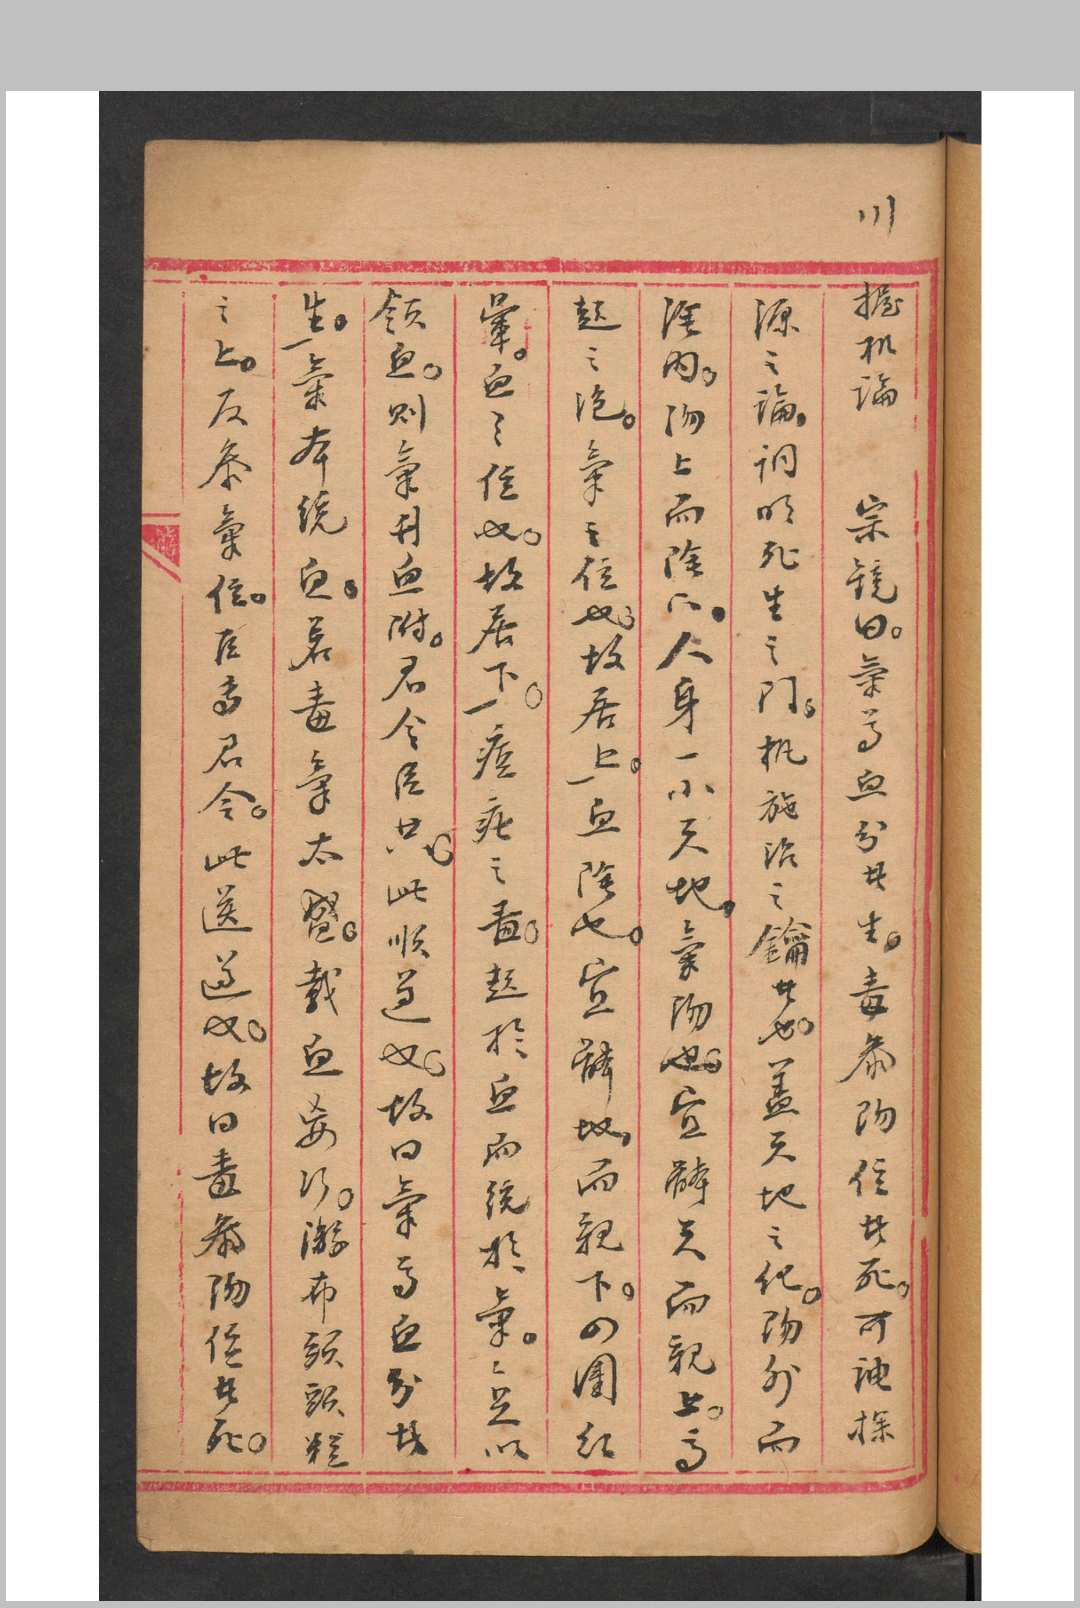 川
握机論 宗鏡曰。氣為血分者生。毒參陽位者死。可神探
源之論。洞明死生之門。机施治之鑰者也。盖天地之化。陽外而
陰內。陽上而陰下。人身一小天地。氣陽也。宜體天而親上。為
起之泡。氣之位也。故居上。血陰也。宜體地。而親下。四圍紅
暈。血之位也。故居下。痘疵之毒。起於血而統於氣。〻足以
領血。則氣到血附。君令臣共。此順道也。故曰氣為血分者
生。氣本統血。若毒氣太盛。載血妄行。游布頭頭粒
之上。反參氣位。臣為君令。此逆道也。故曰毒參陽位者死。